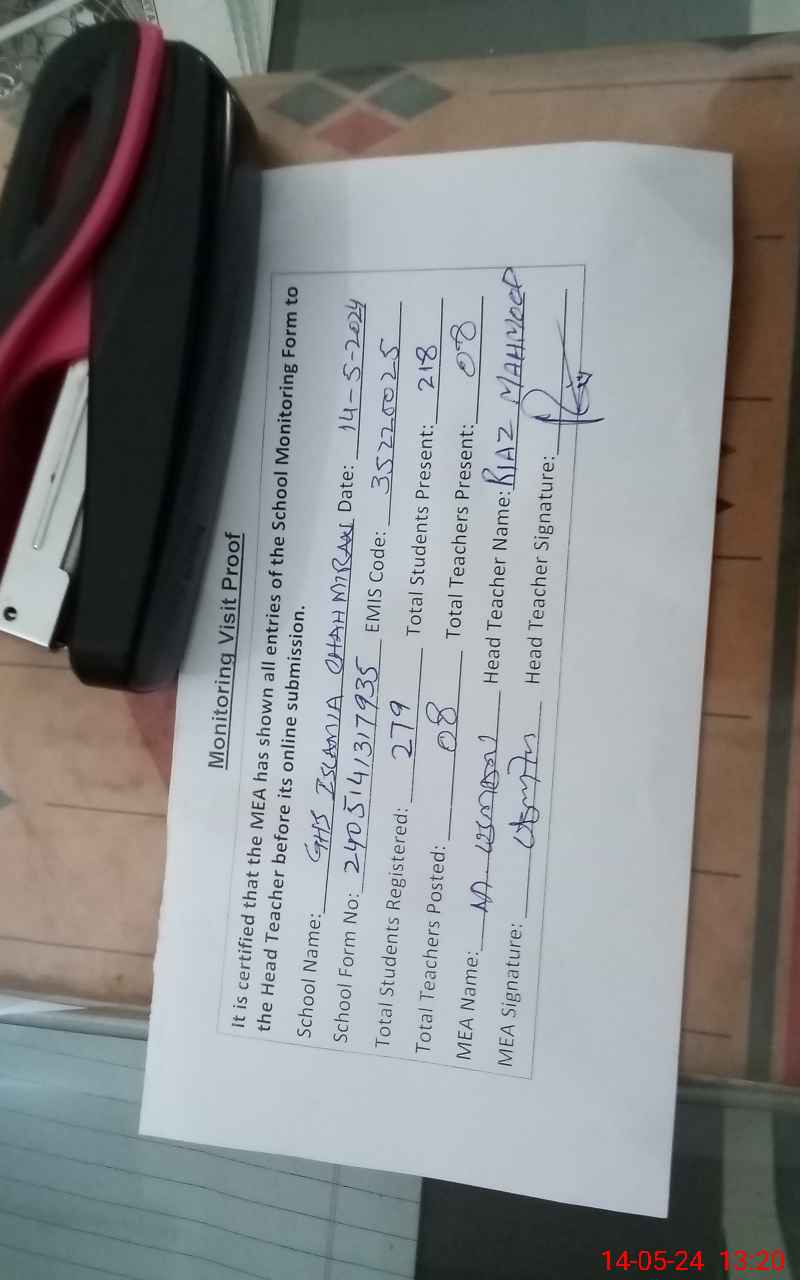 Monitoring Visit Proof
It is certified that the MEA has shown all entries of the School Monitoring Form to
the Head Teacher before its online submission.
School Name: GHS ISLAMIA CHAH MIRAN Date: 14-5-2024
School Form No: 240514131 7935 EMIS Code: 35220025
Total Students Registered: 279 Total Students Present: 218
Total Teachers Posted: 08 Total Teachers Present: 08
MEA Name: M. Head Teacher Name: RIAZ MAHMOOD
MEA Signature: Head Teacher Signature:
14-05-24 13:20